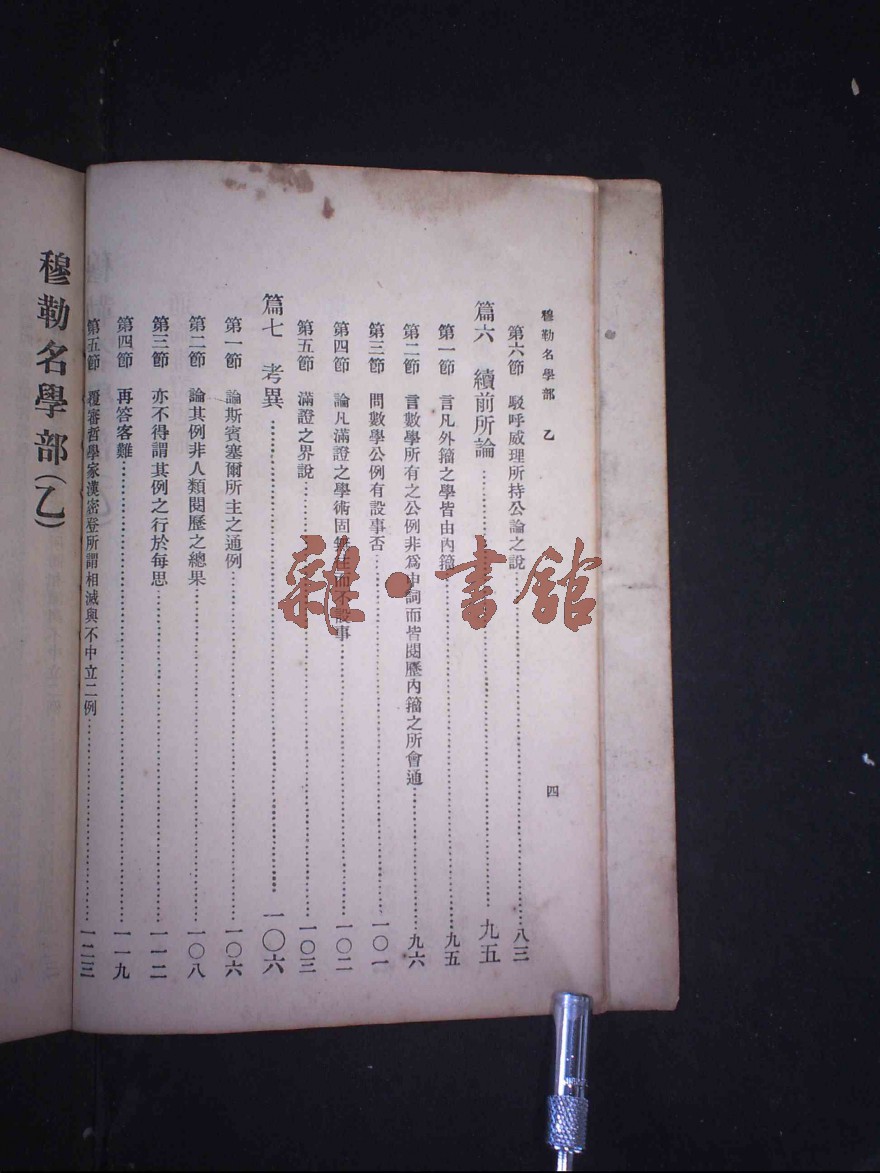 穆勒名學部 乙
四
第六節 駁呼威理所持公論之說……八三
篇六 續前所論……九五
第一節 言凡外籀之學皆由內籀……九五
第二節 言數學所有之公例非為申詞而皆閱歷內籀之所會通……九六
第三節 問數學公例有設事否……一〇一
第四節 論凡滿證之學術固無往而不設事……一〇二
第五節 滿證之界說……一〇三
篇七 考異……一〇六
第一節 論斯賓塞爾所主之通例……一〇六
第二節 論其例非人類閱歷之總果……一〇八
第三節 亦不得謂其例之行於每思……一一二
第四節 再答客難……一一九
第五節 覆審哲學家漢密登所謂相滅與不中立二例……一二三
穆勒名學部(乙)
雜·書館